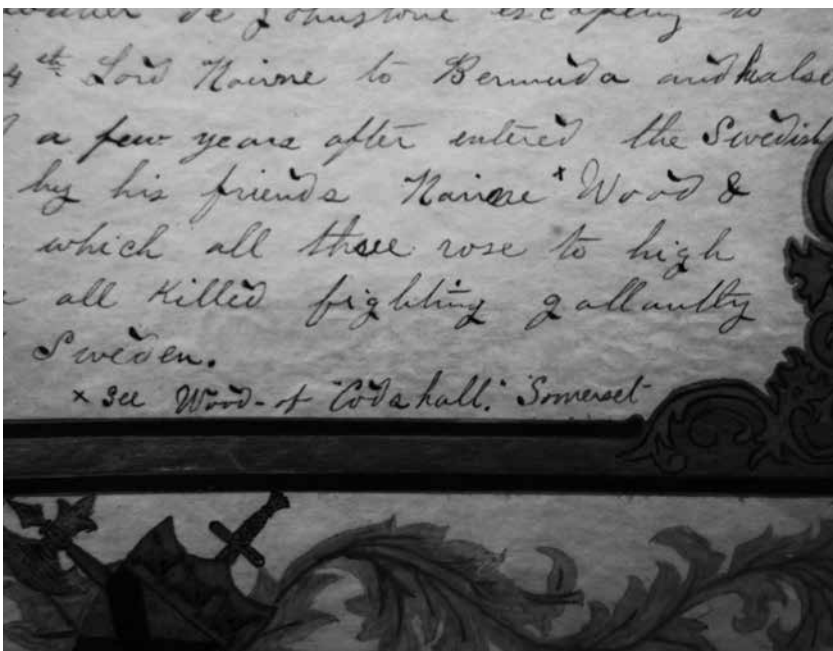 de Johnstone escaping to
4th Lord Nairne to Bermuda and halso
a few years after entered the Swedish
by his friends Nairne x Wood &
which all three rose to high
all Killed fighting gallantly
Sweden.
x See Wood - of "Codshall." Somerset